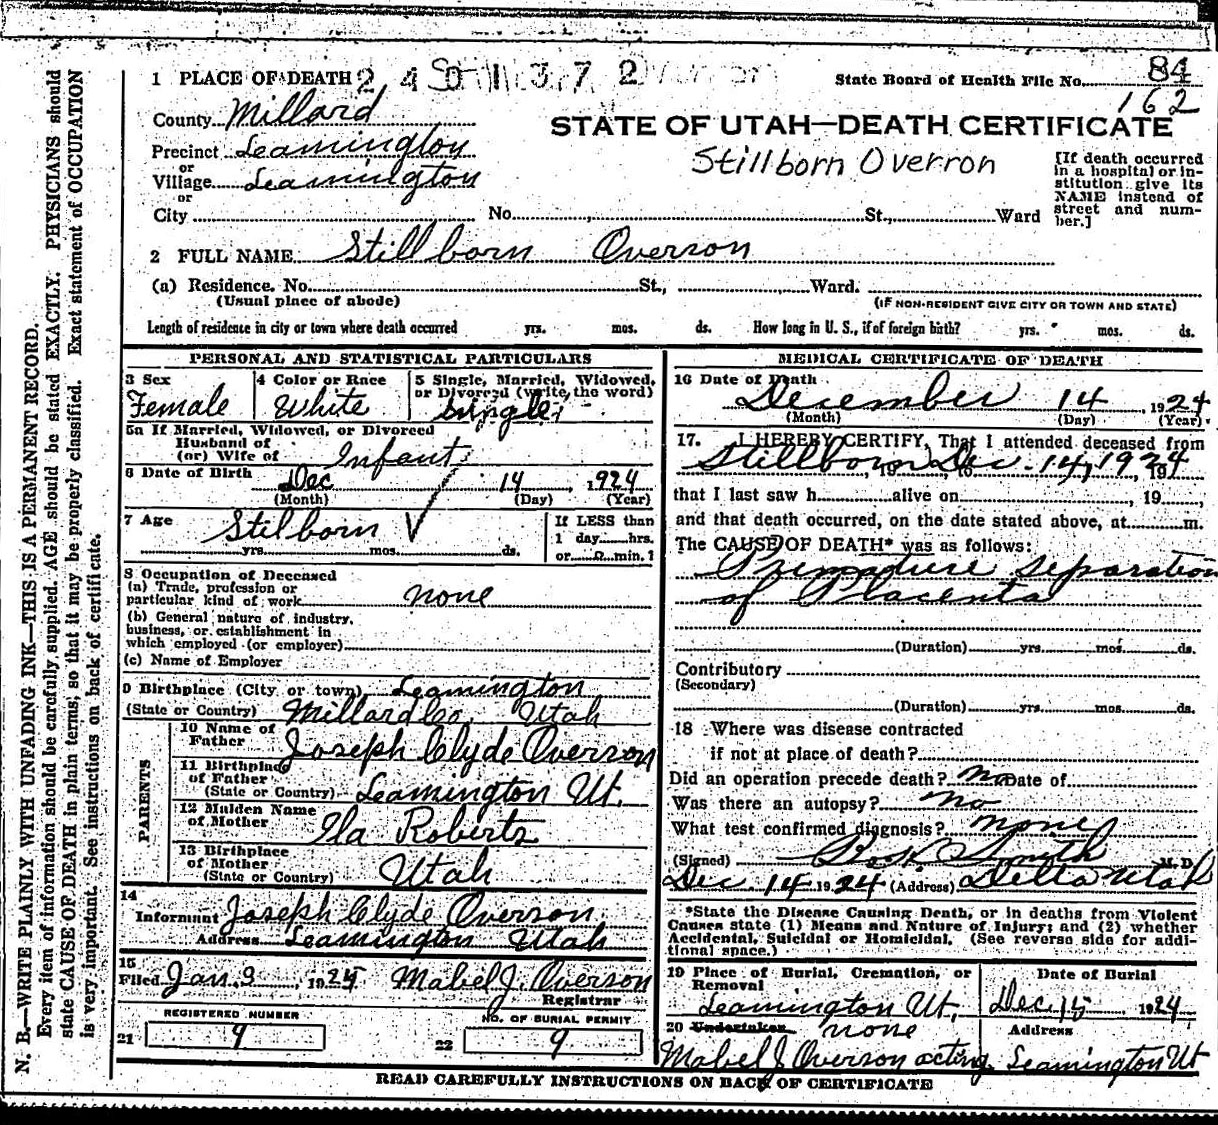 1 PLACE OF DEATH 2 4 0 1 3 7 2 State Board of Health File No. 84
162
County Millard
STATE OF UTAH—DEATH CERTIFICATE
Precinct Leamington
or
Village Leamington
or
Stillborn Overron
[If death occurred in a hospital or in-
stitution give its
NAME instead of
street and num-
ber.]
City No. , St., Ward
2 FULL NAME Stillborn Overson
(a) Residence. No. St., Ward.
(Usual place of abode) (IF NON-RESIDENT GIVE CITY OR TOWN AND STATE)
Length of residence in city or town where death occurred yrs. mos. ds. How long in U. S., if of foreign birth? yrs. mos. ds.
PERSONAL AND STATISTICAL PARTICULARS
3 Sex
Female
4 Color or Race
White
5 Single, Married, Widowed,
or Divorced (write the word)
Single
5a If Married, Widowed, or Divorced
Husband of
(or) Wife of Infant
6 Date of Birth
Dec 14, 1924
(Month) (Day) (Year)
7 Age Stilborn
yrs. mos. ds.
If LESS than
1 day hrs.
or min.
8 Occupation of Deceased
(a) Trade, profession or
particular kind of work none
(b) General nature of industry,
business, or establishment in
which employed (or employer)
(c) Name of Employer
9 Birthplace (City or town) Leamington
(State or Country) Millard Co. Utah
PARENTS
10 Name of
Father Joseph Clyde Overson
11 Birthplace
of Father
(State or Country) Leamington Ut.
12 Maiden Name
of Mother Ila Roberts
13 Birthplace
of Mother
(State or Country) Utah
14
Informant Joseph Clyde Overson
Address Leamington Utah
15
Filed Jan. 3, 1925 Mabel J. Overson
Registrar
REGISTERED NUMBER
21 9
NO. OF BURIAL PERMIT
22 9
MEDICAL CERTIFICATE OF DEATH
16 Date of Death
December 14, 1924
(Month) (Day) (Year)
17. I HEREBY CERTIFY, That I attended deceased from
Stillborn Dec. 14, 1924
that I last saw h alive on , 19
and that death occurred, on the date stated above, at m.
The CAUSE OF DEATH* was as follows:
Premadure Separation
of Placenta
(Duration) yrs. mos. ds.
Contributory
(Secondary)
(Duration) yrs. mos. ds.
18 Where was disease contracted
if not at place of death?
Did an operation precede death? No Date of
Was there an autopsy? no
What test confirmed diagnosis? none
(Signed) Smith M. D.
Dec. 14 1924 (Address) Delta Utah
*State the Disease Causing Death, or in deaths from Violent
Causes state (1) Means and Nature of Injury; and (2) whether
Accidental, Suicidal or Homicidal. (See reverse side for addi-
tional space.)
19 Place of Burial, Cremation, or
Removal
Leamington Ut.
Date of Burial
Dec. 15 1924
20 Undertaker none
Mabel J Overson acting
Address
Leamington Ut
READ CAREFULLY INSTRUCTIONS ON BACK OF CERTIFICATE
N. B.—WRITE PLAINLY WITH UNFADING INK—THIS IS A PERMANENT RECORD.
Every item of information should be carefully supplied. AGE should be stated EXACTLY. PHYSICIANS should
state CAUSE OF DEATH in plain terms, so that it may be properly classified. Exact statement of OCCUPATION
is very important. See instructions on back of certificate.